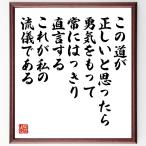 この道が
正しいと思ったら
勇気をもって
常にはっきり
直言する
これが私の
流儀である